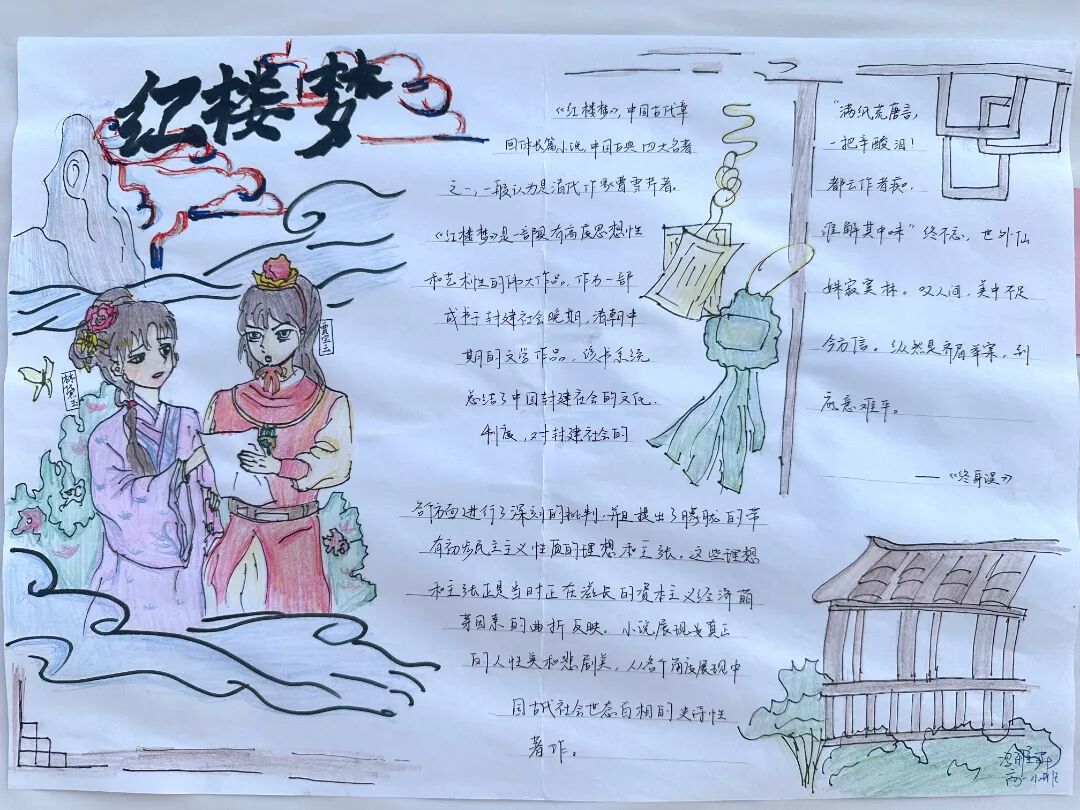 红楼梦
林黛玉
贾宝玉
《红楼梦》，中国古代章
回体长篇小说，中国古典四大名著
之一，一般认为是清代作家曹雪芹著。
《红楼梦》是一部具有高度思想性
和艺术性的伟大作品。作为一部
成书于封建社会晚期，清朝中
期的文学作品，该书系统
总结了中国封建社会的文化、
制度，对封建社会的
各个方面进行了深刻的批判，并且提出了朦胧的带
有初步民主主义性质的理想和主张。这些理想
和主张正是当时正在滋长的资本主义经济萌
芽因素的曲折反映。小说展现出真正
的人性美和悲剧美，从各个角度展现中
国古代社会世态百相的史诗性
著作。
“满纸荒唐言，
一把辛酸泪！
都云作者痴，
谁解其中味”终不忘，世外仙
姝寂寞林。叹人间，美中不足
今方信。纵然是齐眉举案，到
底意难平。
——《终身误》